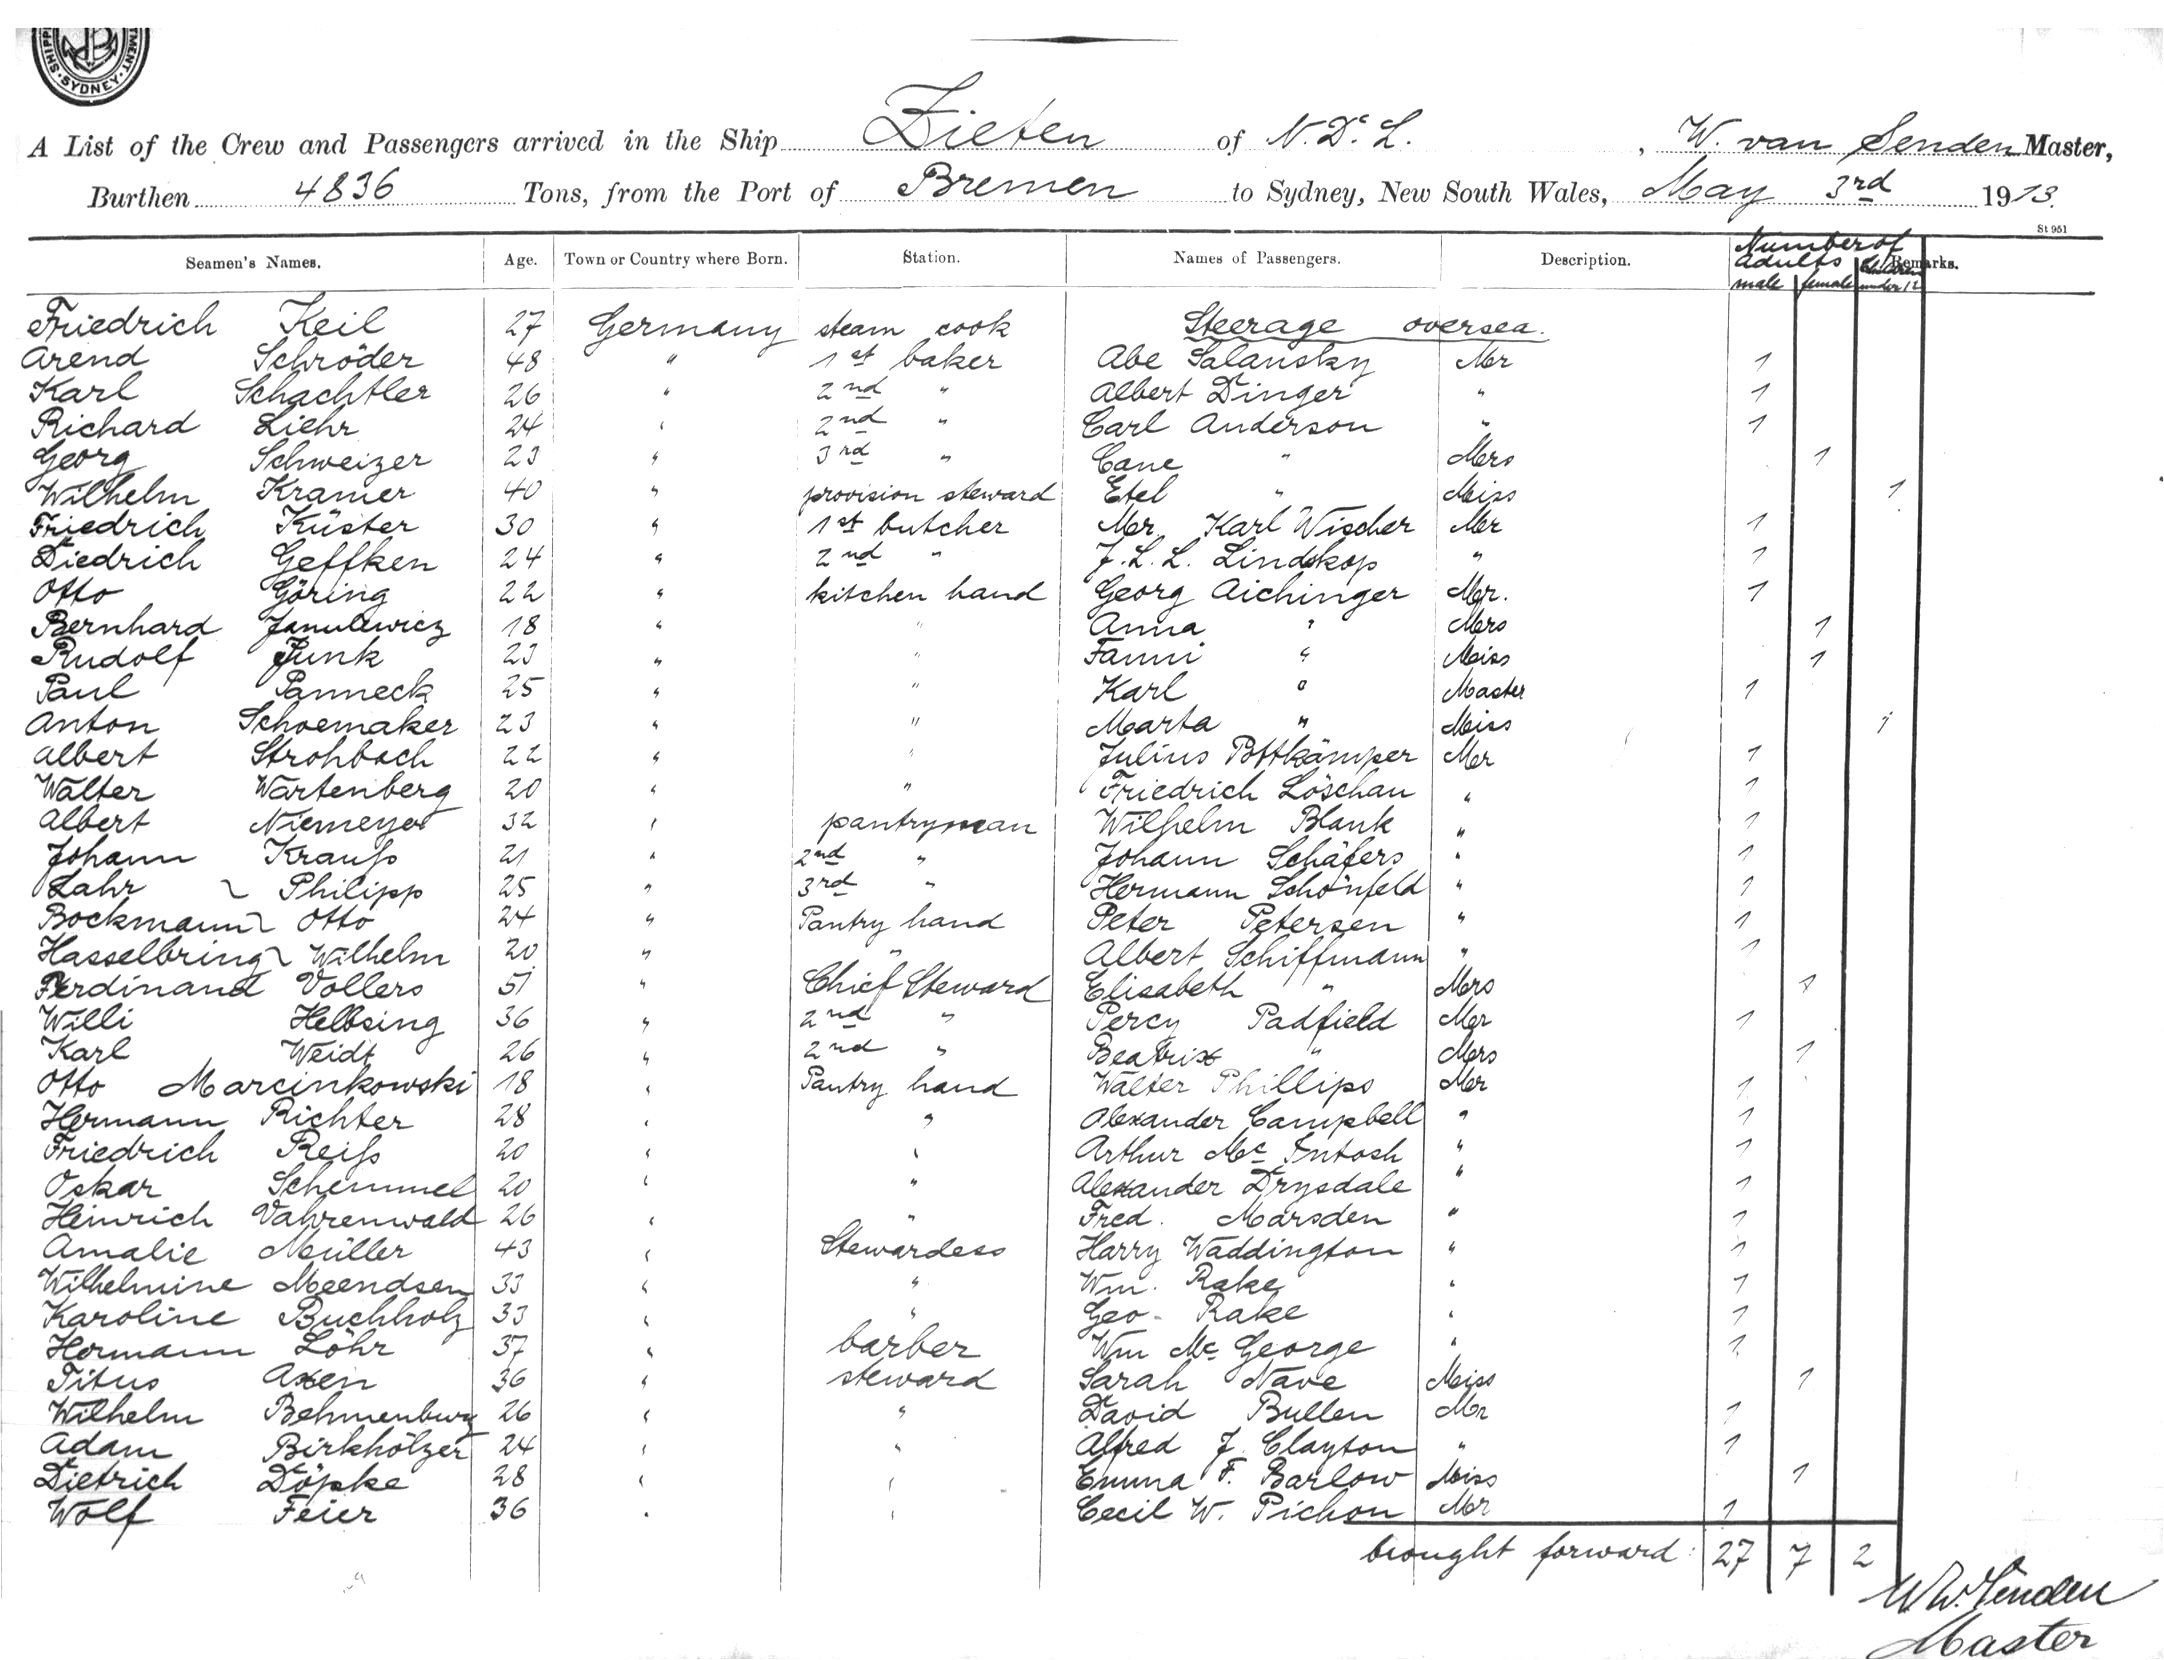 SHIPP · SYDNEY · TMENT
A List of the Crew and Passengers arrived in the Ship Zieten of N. D. L. , W. van Senden Master,
Burthen 4836 Tons, from the Port of Bremen to Sydney, New South Wales, May 3rd 1913.
St 951
Seamen's Names. Age. Town or Country where Born. Station. Names of Passengers. Description. Number of adults male female children under 12 Remarks.
Friedrich Keil 27 Germany steam cook Steerage oversea.
Arend Schröder 48 " 1st baker Abe Salansky Mr 1
Karl Schachtler 26 " 2nd " Albert Dinger " 1
Richard Liehr 24 " 2nd " Carl Anderson " 1
Georg Schweizer 23 " 3rd " Cane " Mrs 1
Wilhelm Kramer 40 " provision steward Etel " Miss 1
Friedrich Küster 30 " 1st butcher Mr. Karl Wischer Mr 1
Diedrich Geffken 24 " 2nd " J. L. L. Lindskop " 1
Otto Göring 22 " kitchen hand Georg Aichinger Mr. 1
Bernhard Janulewicz 18 " " Anna " Mrs 1
Rudolf Junk 23 " " Fanni " Miss 1
Paul Panneck 25 " " Karl " Master 1
Anton Schoemaker 23 " " Marta " Miss 1
Albert Strohbach 22 " " Julius Pottkämper Mr 1
Walter Wartenberg 20 " " Friedrich Löschau " 1
Albert Niemeyer 32 " pantryman Wilhelm Blank " 1
Johann Krauß 21 " 2nd " Johann Schäfers " 1
Lahr ~ Philipp 25 " 3rd " Hermann Schönfeld " 1
Bockmann ~ Otto 24 " Pantry hand Peter Petersen " 1
Hasselbring ~ Wilhelm 20 " " Albert Schiffmann " 1
Ferdinand Vollers 51 " Chief Steward Elisabeth " Mrs 1
Willi Helbsing 36 " 2nd " Percy Padfield Mr 1
Karl Weidt 26 " 2nd " Beatrix " Mrs 1
Otto Marcinkowski 18 " Pantry hand Walter Phillips Mr 1
Hermann Richter 28 " " Alexander Campbell " 1
Friedrich Reiß 20 " " Arthur Mc Intosh " 1
Oskar Schemmel 20 " " Alexander Drysdale " 1
Heinrich Vahrenwald 26 " " Fred. Marsden " 1
Amalie Müller 43 " Stewardess Harry Waddington " 1
Wilhelmine Meendsen 33 " " Wm. Rake " 1
Karoline Buchholz 33 " " Geo. Rake " 1
Hermann Löhr 37 " barber Wm Mc George " 1
Titus Axen 36 " steward Sarah Nave Miss 1
Wilhelm Behmenburg 26 " " David Bullen Mr 1
Adam Birkhölzer 24 " " Alfred J. Clayton " 1
Dietrich Döpke 28 " " Emma F. Barlow Miss 1
Wolf Feier 36 " " Cecil W. Pichon Mr 1
brought forward: 27 7 2
W. v. Senden
Master